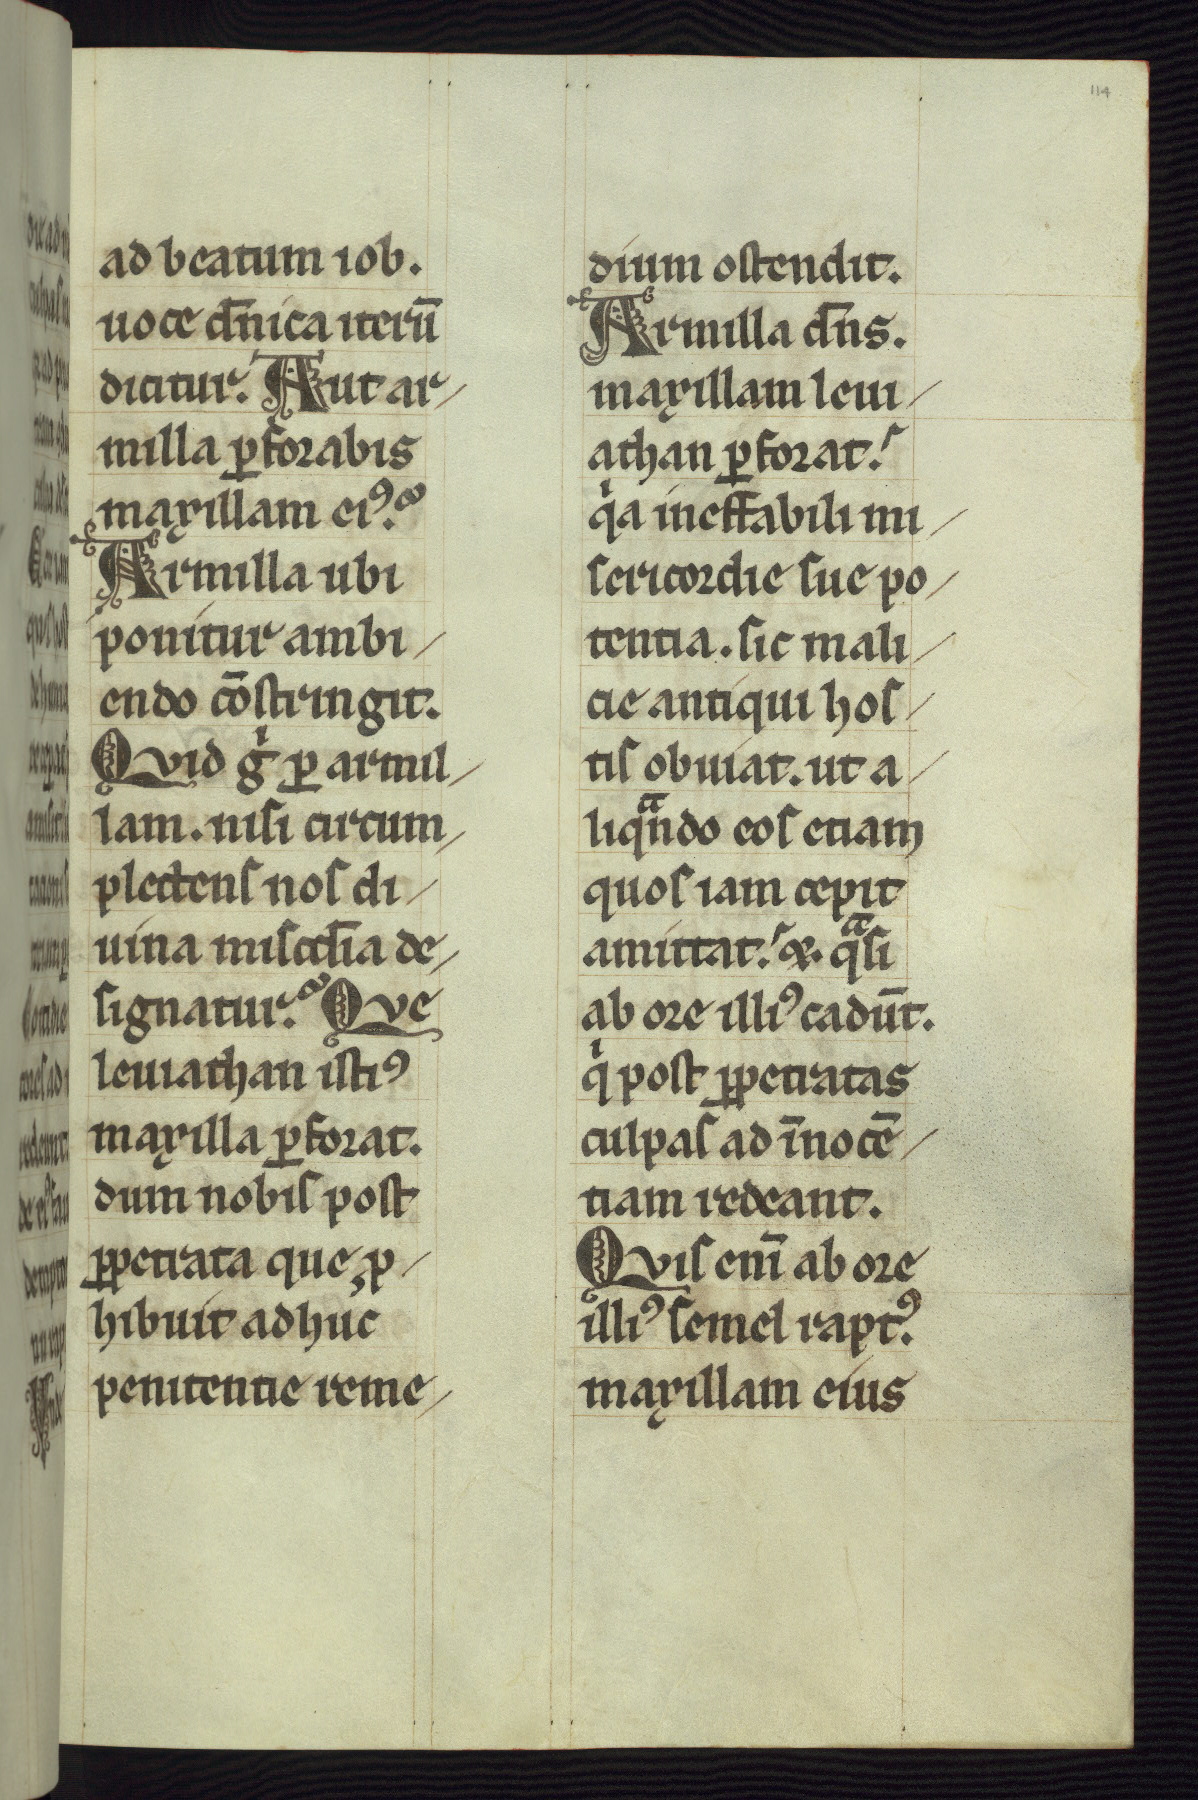 114
ad beatum iob.
uoce dn̄ica iterū
dicitur. Aut ar/
milla ꝑforabis
maxillam eiꝰ.
Armilla ubi
ponitur ambi/
endo cōstringit.
Quid gͥ ꝑ armil/
lam. nisi circum/
plectens nos di/
uina misc̄dia de/
signatur. Que
leuiathan istiꝰ
maxilla ꝑforat.
dum nobis post
ꝑpetrata que ꝓ/
hibuit adhuc
penitentie reme/
dium ostendit.
Armilla dn̄s.
maxillam leui/
athan ꝑforat.
qͥa ineffabili mi/
sericordie sue po/
tentia. sic mali/
cie antiqui hos/
tis obuiat. ut a/
liqͣndo eos etiam
quos iam cepit
amittat. ⁊ qͣsi
ab ore illiꝰ cadūt.
qͥ post ꝑpetratas
culpas ad īnocē/
tiam redeant.
Quis enī ab ore
illiꝰ semel raptꝰ.
maxillam eius